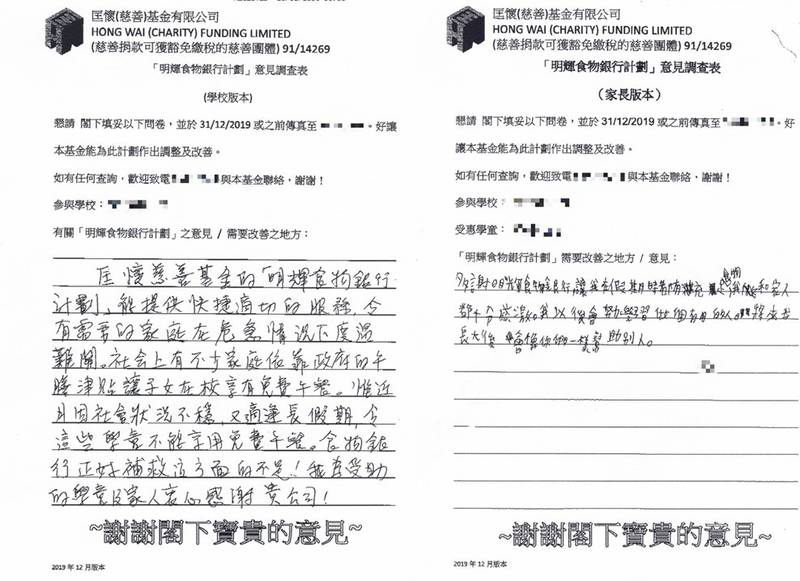 匡懷(慈善)基金有限公司
HONG WAI (CHARITY) FUNDING LIMITED
(慈善捐款可獲豁免繳稅的慈善團體) 91/14269
「明輝食物銀行計劃」意見調查表
(學校版本)
懇請 閣下填妥以下問卷，並於 31/12/2019 或之前傳真至 。好讓
本基金能為此計劃作出調整及改善。
如有任何查詢，歡迎致電 與本基金聯絡，謝謝！
參與學校：
有關「明輝食物銀行計劃」之意見 / 需要改善之地方：
匡懷慈善基金的「明輝食物銀行
計劃」能提供快捷適切的服務，令
有需要的家庭在危急情況下度過
難關。社會上有不少家庭依靠政府的午
膳津貼讓子女在校享有免費午餐。惟近
月因社會狀況不穩，又適逢長假期，令
這些學童不能享用免費午餐。食物銀
行正好補救這方面的不足！我為受助
的學童及家人衷心感謝 貴公司！
~謝謝閣下寶貴的意見~
2019 年 12 月版本
匡懷(慈善)基金有限公司
HONG WAI (CHARITY) FUNDING LIMITED
(慈善捐款可獲豁免繳稅的慈善團體) 91/14269
「明輝食物銀行計劃」意見調查表
（家長版本）
懇請 閣下填妥以下問卷，並於 31/12/2019 或之前傳真至 。好
讓本基金能為此計劃作出調整及改善。
如有任何查詢，歡迎致電 與本基金聯絡，謝謝！
參與學校：
受惠學童：
「明輝食物銀行計劃」需要改善之地方 / 意見：
多謝明輝食物銀行讓我有假期 和家人
都十分感激。我以後會勤學習做個有用的人。將來
長大後會像你們一樣幫助別人。
~謝謝閣下寶貴的意見~
2019 年 12 月版本